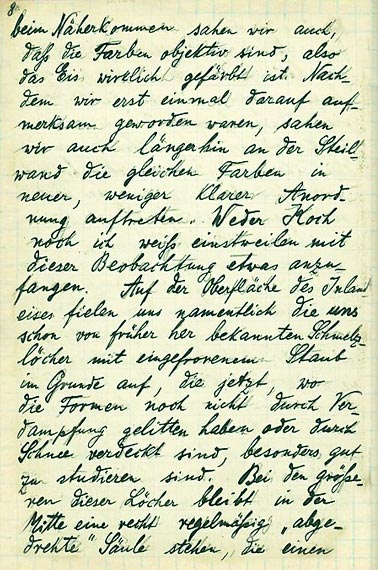 8
beim Näherkommen sahen wir auch,
daß die Farben objektiv sind, also
das Eis wirklich gefärbt ist. Nach-
dem wir erst einmal darauf auf-
merksam geworden waren, sahen
wir auch längerhin an der Steil-
wand die gleichen Farben in
neuer, weniger klarer Anord-
nung auftreten. Weder Koch
noch ich weiß einstweilen mit
dieser Beobachtung etwas anzu-
fangen. Auf der Oberfläche des Inland
eises fielen uns namentlich die uns
schon von früher her bekannten Schmelz-
löcher mit eingefrorenem Staub
im Grunde auf, die jetzt, wo
die Formen noch nicht durch Ver-
dampfung gelitten haben oder durch
Schnee verdeckt sind, besonders gut
zu studieren sind. Bei den größe-
ren dieser Löcher bleibt in der
Mitte eine recht regelmäßig „abge-
drehte" Säule stehen, die einen